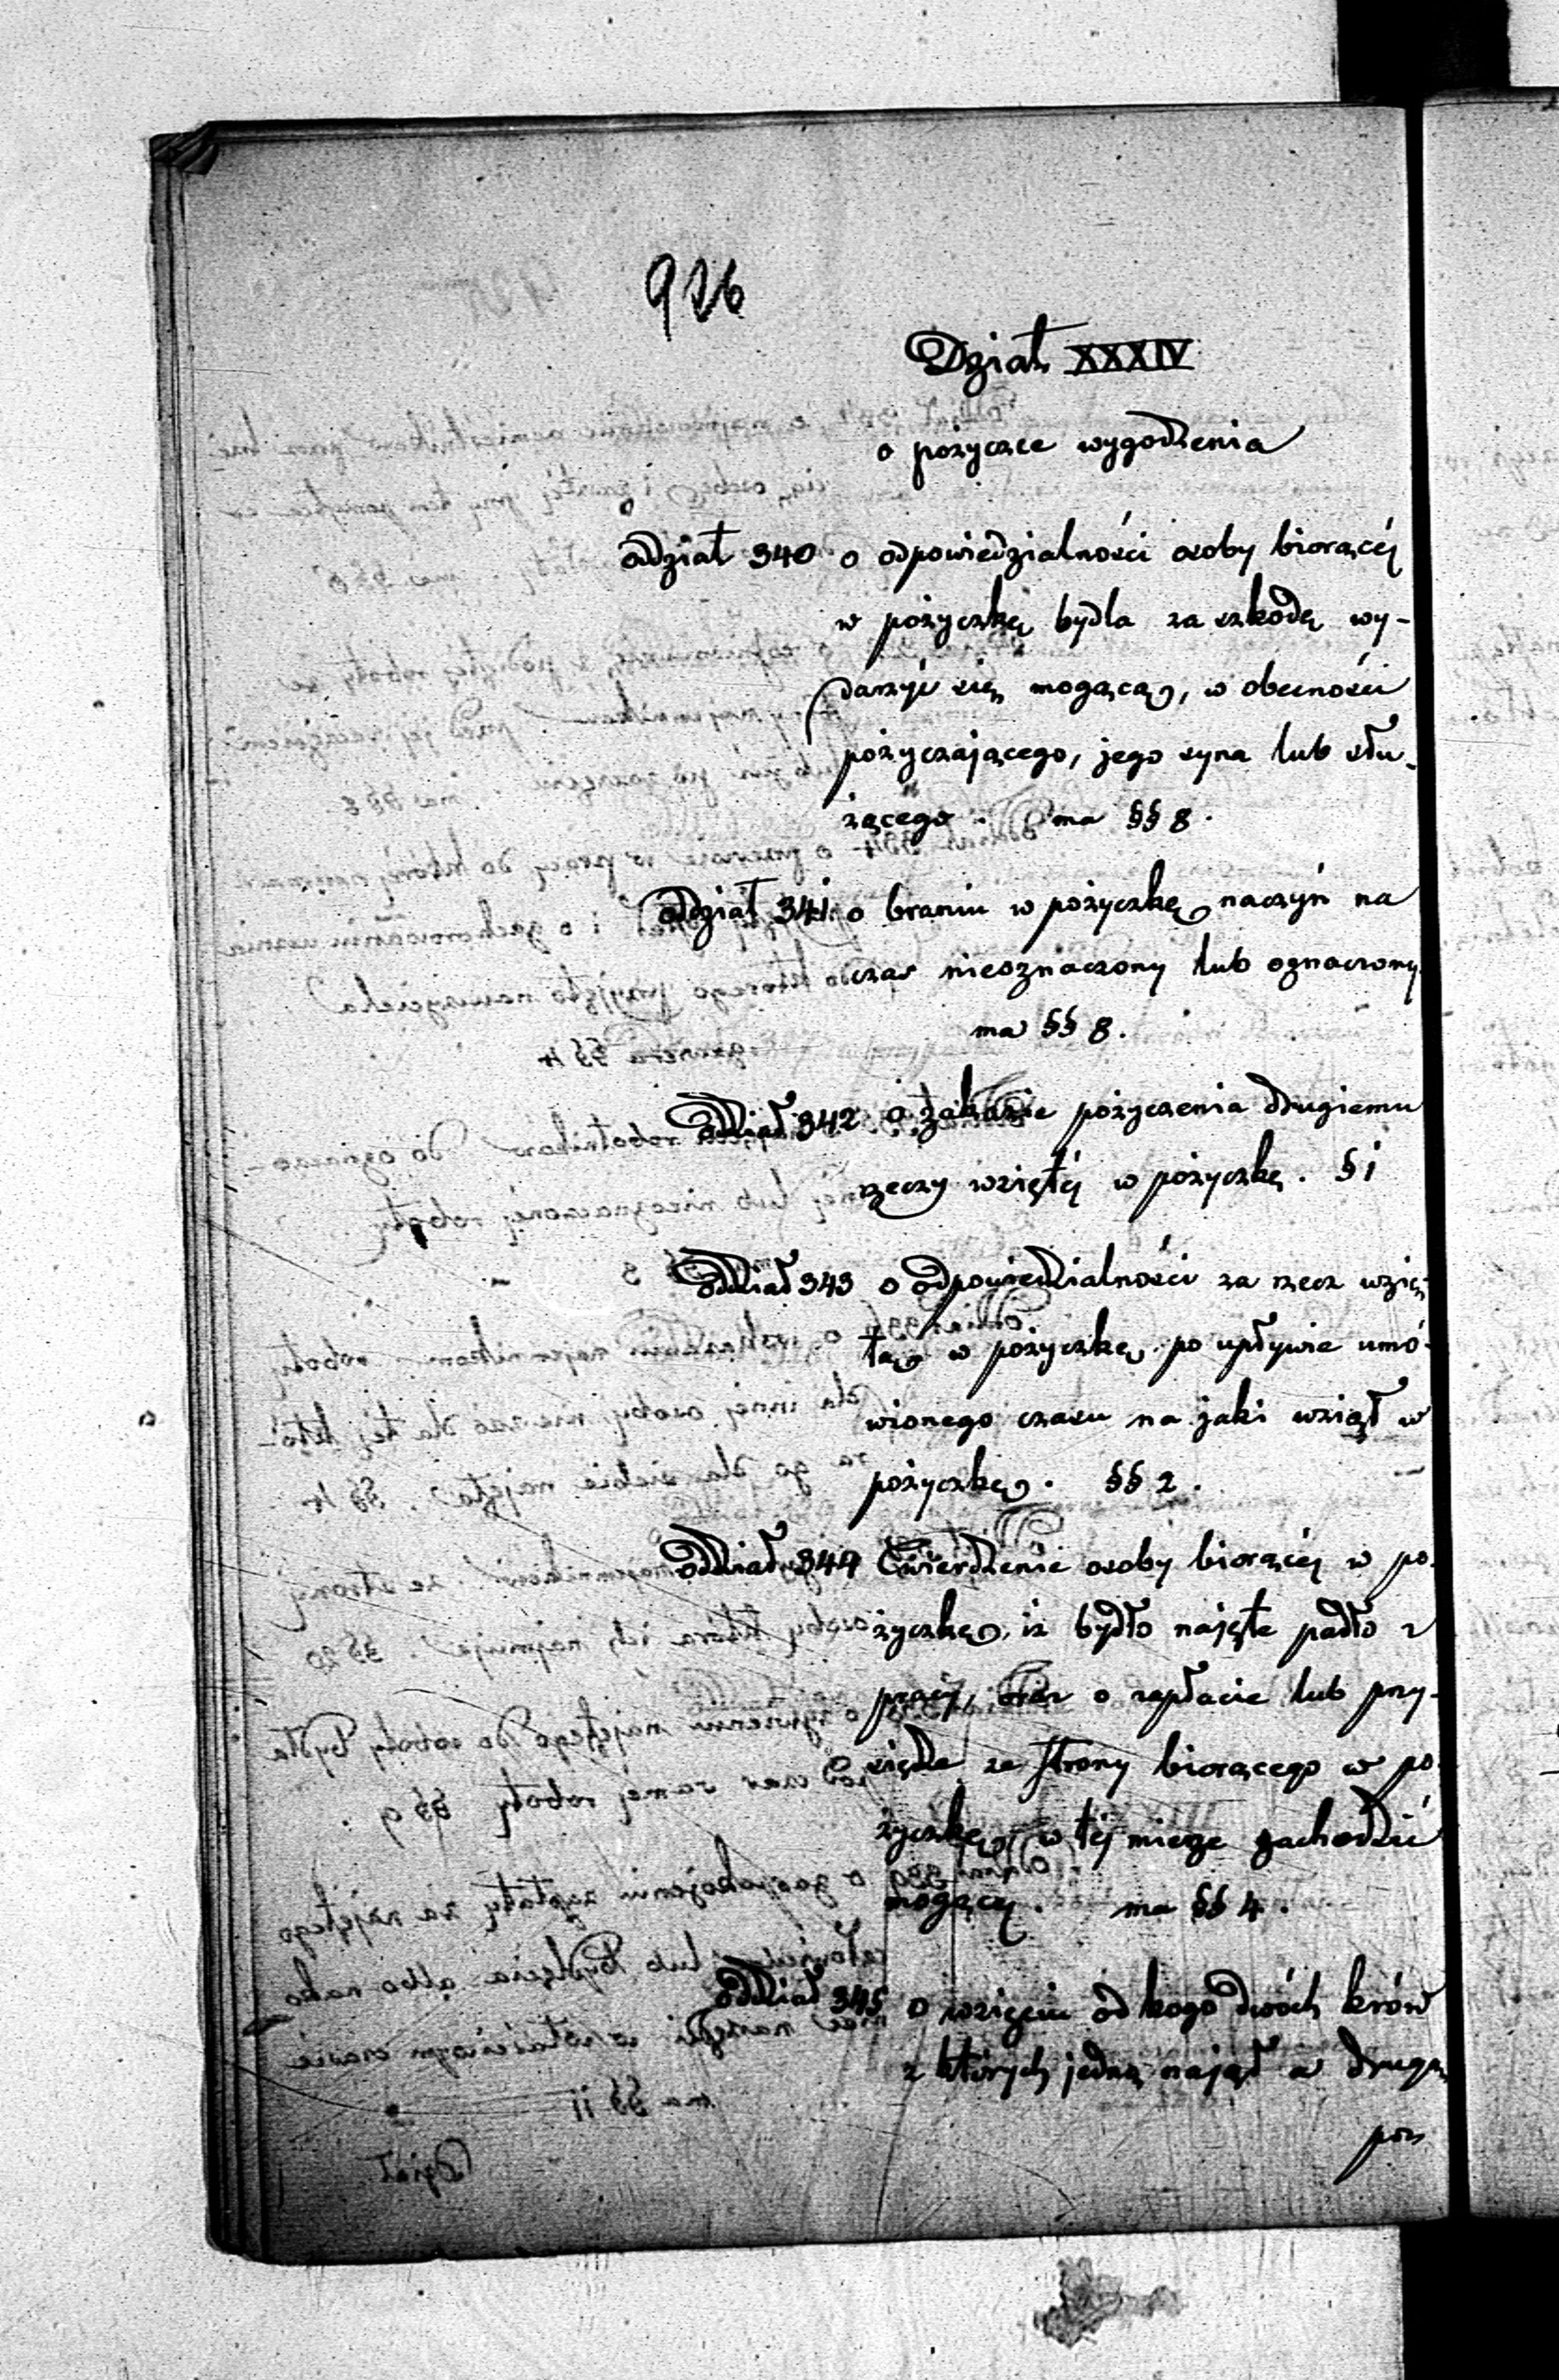 926
Dział XXXIV
o pożyczce wygodzenia
Oddział 340 o odpowiedzialności osoby biorącéj
w pożyczkę bydla za szkodę wy-
darzyć się mogącą, w obecności
pożyczającego, jego syna lub słu-
żącego. ma §§ 8.
Oddział 341 o braniu w pożyczkę naczyń na
czas nieoznaczony lub oznaczony
ma §§ 8.
Oddział 342 o zakazie pożyczenia drugiemu
rzeczy wziętéj w pożyczkę. § 1
Oddział 343 o odpowiedzialności za rzecz wzię-
tą w pożyczkę po upływie umó-
wionego czasu na jaki wziął w
pożyczkę. §§ 2.
Oddział 344 Twierdzenie osoby biorącéj w po-
życzkę, iż bydło najęte padło z
pracy, oraz o zapłacie lub przy-
siędze ze strony biorącego w po-
życzkę, w téj mierze zachodzić
mogącéj. ma §§ 4.
Oddział 345 o wzięciu od kogo dwóch krów
z których jedną najął a drugą
poz